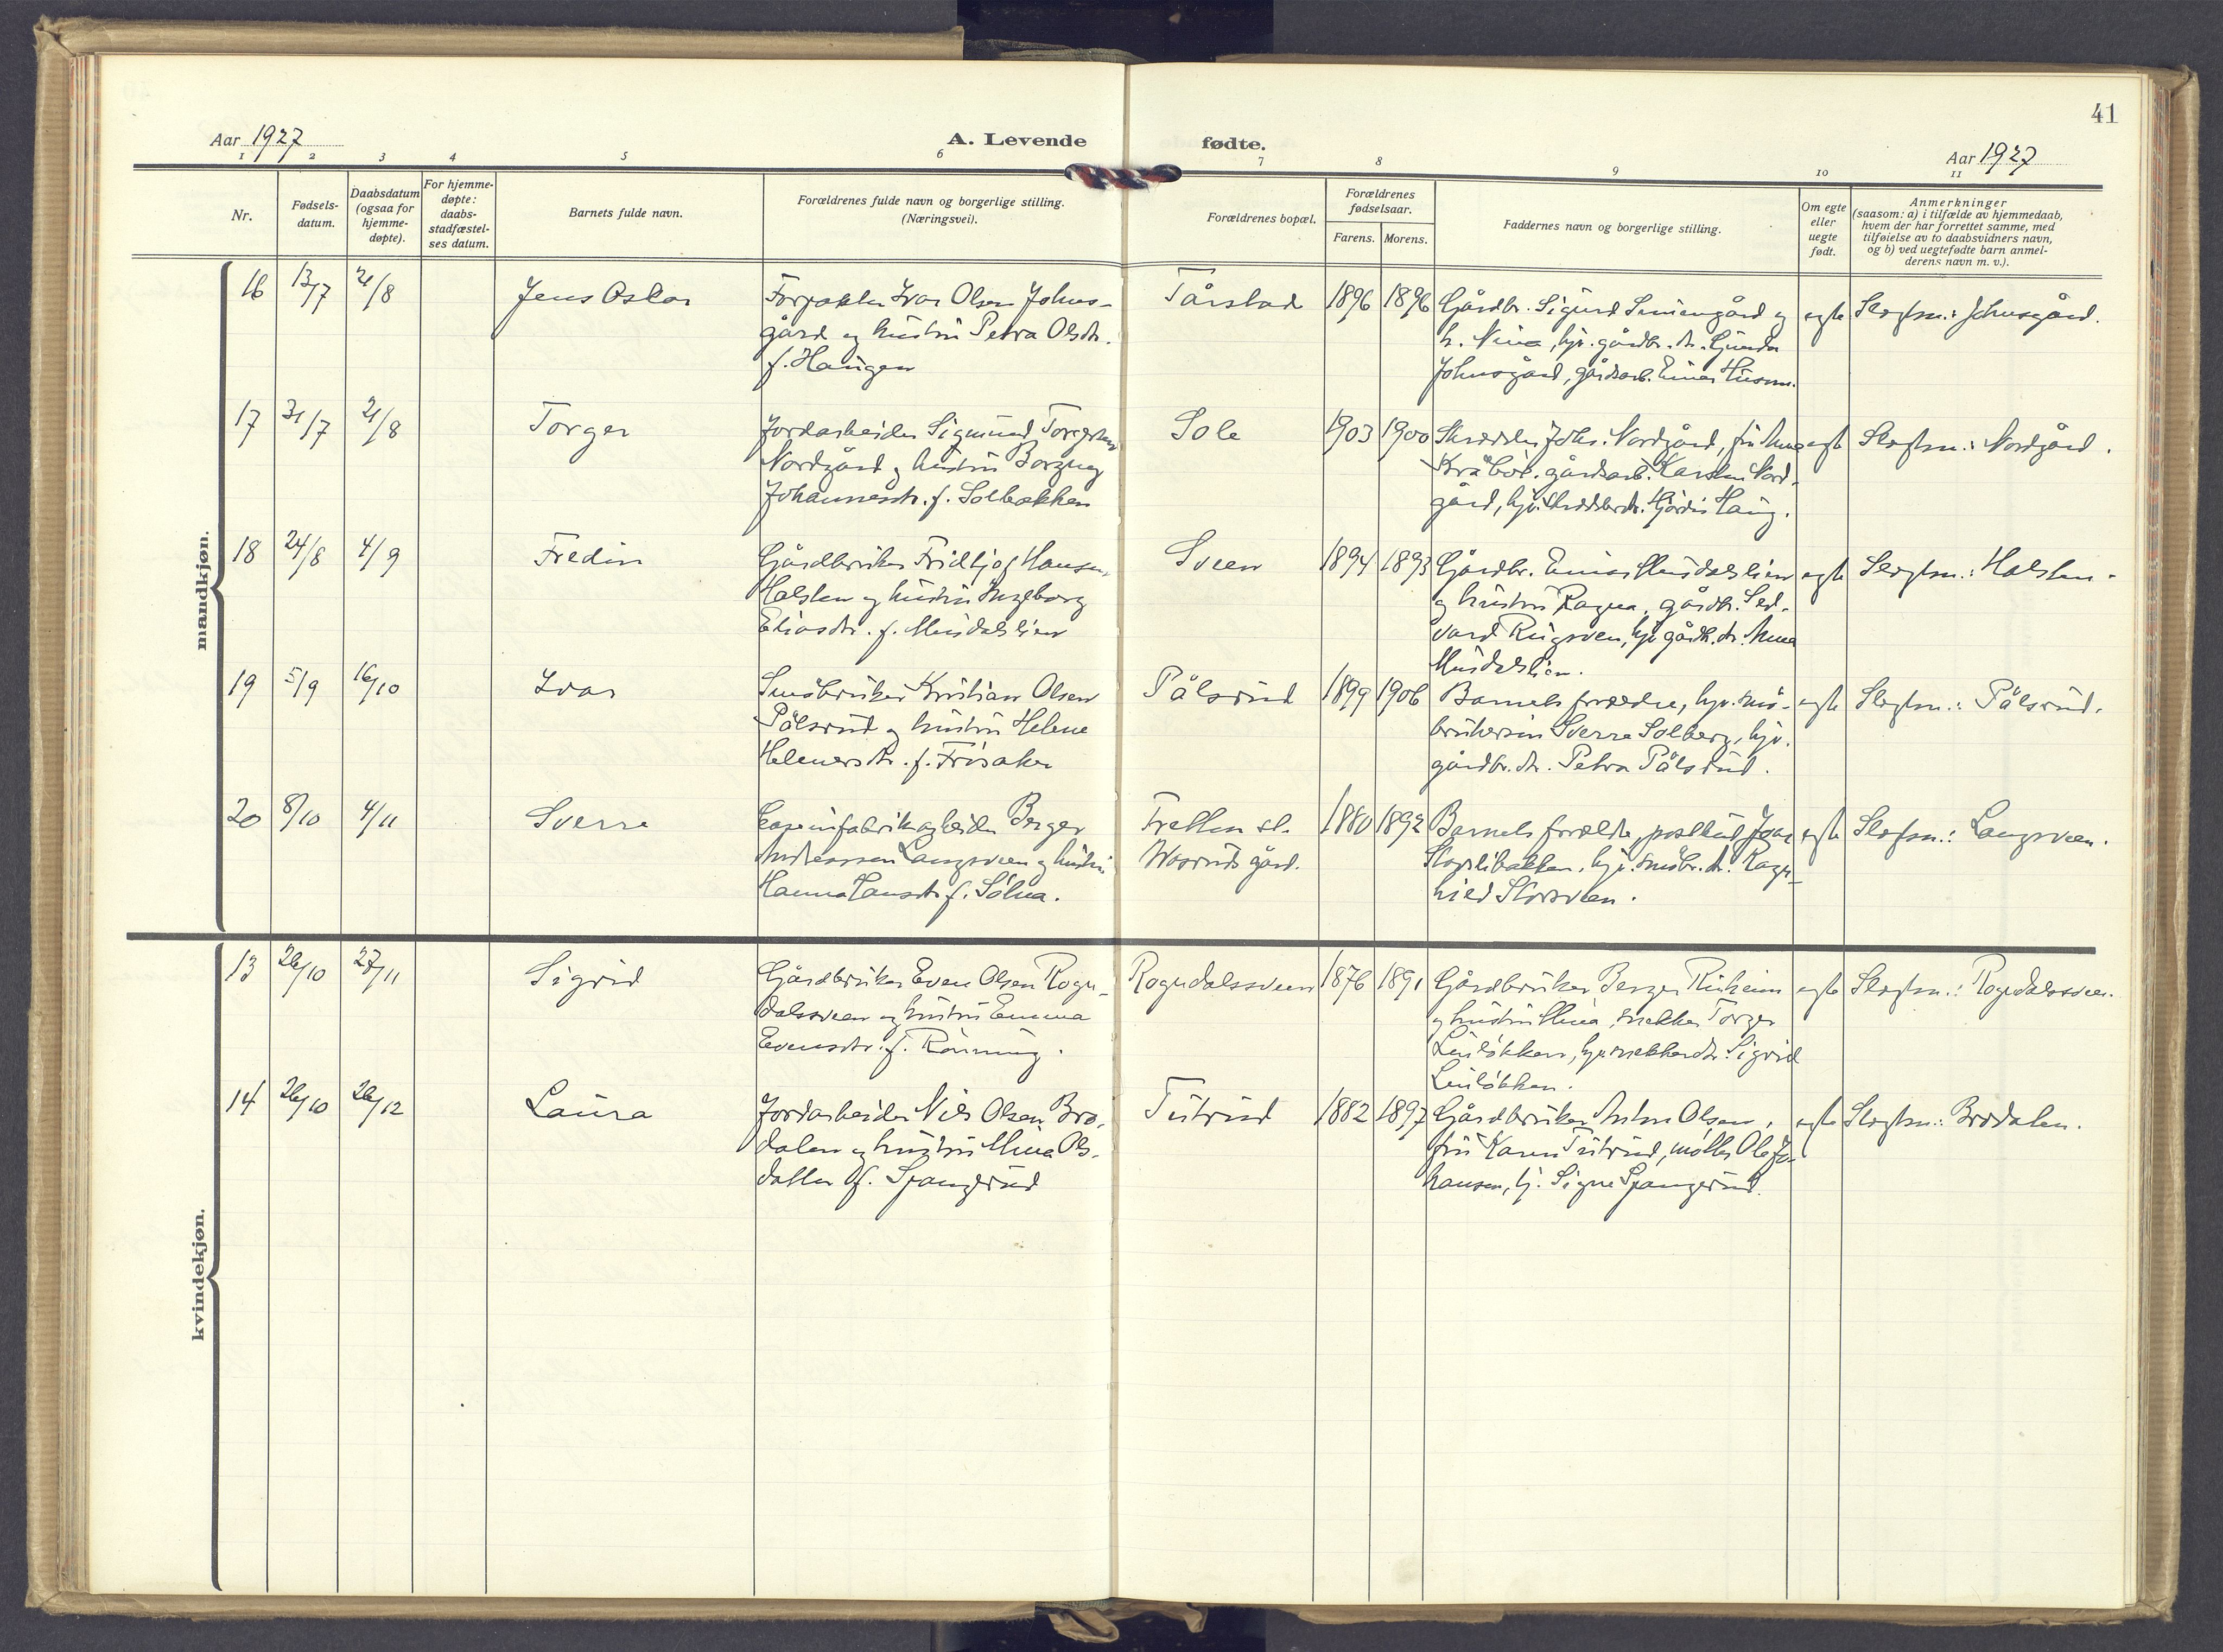 41
Aar 1927
A. Levende fødte.
Aar 1927
1 2 3 4 5 6 7 8 9 10 11
Nr.
Fødsels-
datum.
Daabsdatum
(ogsaa for
hjemme-
døpte).
For hjemme-
døpte:
daabs-
stadfæstel-
ses datum.
Barnets fulde navn.
Forældrenes fulde navn og borgerlige stilling.
(Næringsvei).
Forældrenes bopæl.
Forældrenes
fødselsaar.
Farens. Morens.
Faddernes navn og borgerlige stilling.
Om egte
eller
uegte
født.
Anmerkninger
(saasom: a) i tilfælde av hjemmedaab,
hvem der har forrettet samme, med
tilføielse av to daabsvidners navn,
og b) ved uegtefødte barn anmel-
derens navn m. v.).
mandkjøn.
16 13/7 21/8 Jens Oskar
Forpakter Ivar Olsen Johns-
gård og hustru Petra Olsdtr.
f. Haugen
Tårstad 1896 1896
Gårdbr. Sigurd og
h. , hjv. gårdbr. dr. Gunda
Johnsgård, gårdsarb. Einar
egte Slegtsn.: Johnsgård.
17 31/7 21/8 Torger
Jordarbeider Sigmund Torgersen
Nordgård og hustru Borzug
Johannesdtr. f. Solbakken
Sole 1903 1900
Skrædder Johs. Nordgård, fru Anna
Kråbøl, gårdsarb. Karsten Nord-
gård, hjv. skrædderdr. Hjørdis Haug.
egte Slegtsn.: Nordgård.
18 24/8 4/9 Fredin
Gårdbruker Fridtjof Hansen
Halsten og hustru Ingeborg
Eliasdtr. f. Musdalslien
Sveen 1894 1893
Gårdbr. Einar Musdalslien
og hustru Ragna, gårdbr. Sed-
vard Rugsveen, hjv. gårdb. dr. Anna
Musdalslien.
egte Slegtsn.: Halsten.
19 5/9 16/10 Ivar
Småbruker Kristian Olsen
Pålsrud og hustru Helene
Helmersdtr. f. Frisaker
Pålsrud 1899 1906
Barnets forældre, hjv. små-
brukersøn Sverre Solberg, hjv.
gårdbr. dr. Petra Pålsrud.
egte Slegtsn.: Pålsrud.
20 8/10 4/11 Sverre
Caseinfabrikarbeider Berger
Andreassen Langsveen og hustru
Hanna Hansdtr. f. Solua.
Fretten st.
gård.
1880 1892
Barnets forældre, postbud Ivar
Skogslibakken, hjv. småbr. dr. Ragn-
hild Storsveen.
egte Slegtsn.: Langsveen.
kvindekjøn.
13 26/10 27/11 Sigrid
Gårdbruker Even Olsen Rogn-
dalssveen og hustru Emma
Evensdtr. f. Rønning.
Rogndalssveen 1876 1891
Gårdbruker Berger
og hustru Mina, snekker Torger
Linløkken, hjv. snekkerdr. Sigrid
Linløkken.
egte Slegtsn.: Rogndalssveen.
14 26/10 26/12 Laura
Jordarbeider Nils Olsen Bro-
dalen og hustru Mina Ols-
datter f. Spangerud
Tutrud 1882 1897
Gårdbruker Anton Olsen,
fru Karen Tutrud, møller Ole Jo-
hansen, hj. Signe Spangerud.
egte Slegtsn.: Brodalen.